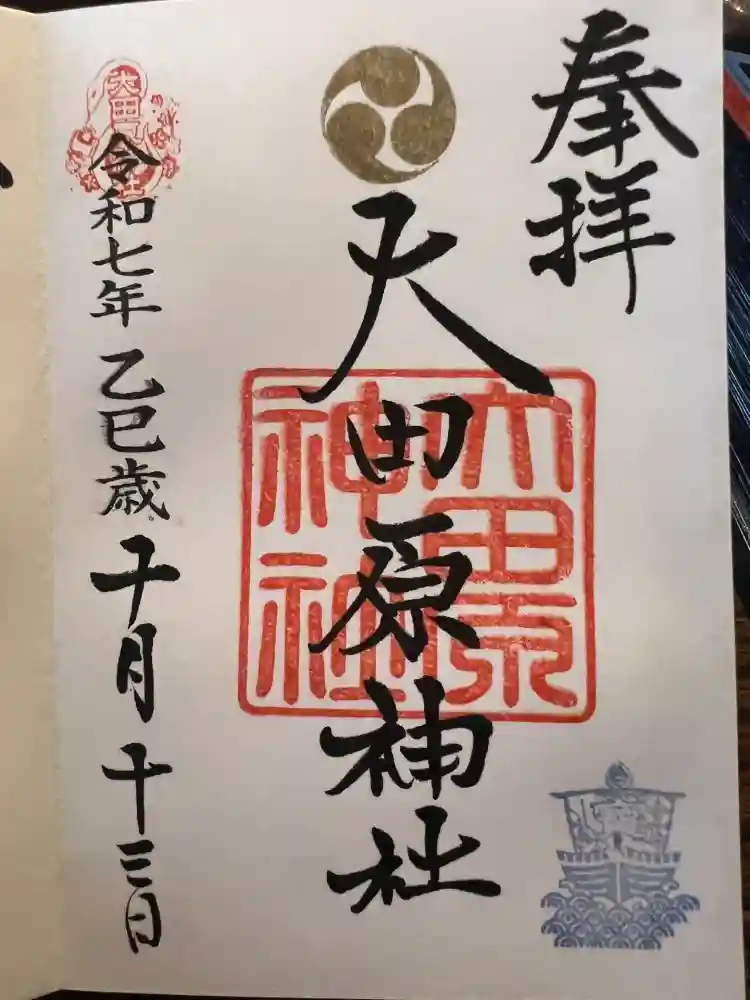 奉拝
大田原神社
大田原
神社
令和七年乙巳歳十月十三日
大田